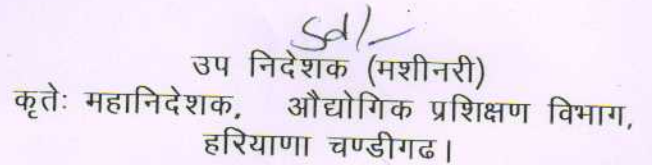 Sd/-
उप निदेशक (मशीनरी)
कृतेः महानिदेशक, औद्योगिक प्रशिक्षण विभाग,
हरियाणा चण्डीगढ।